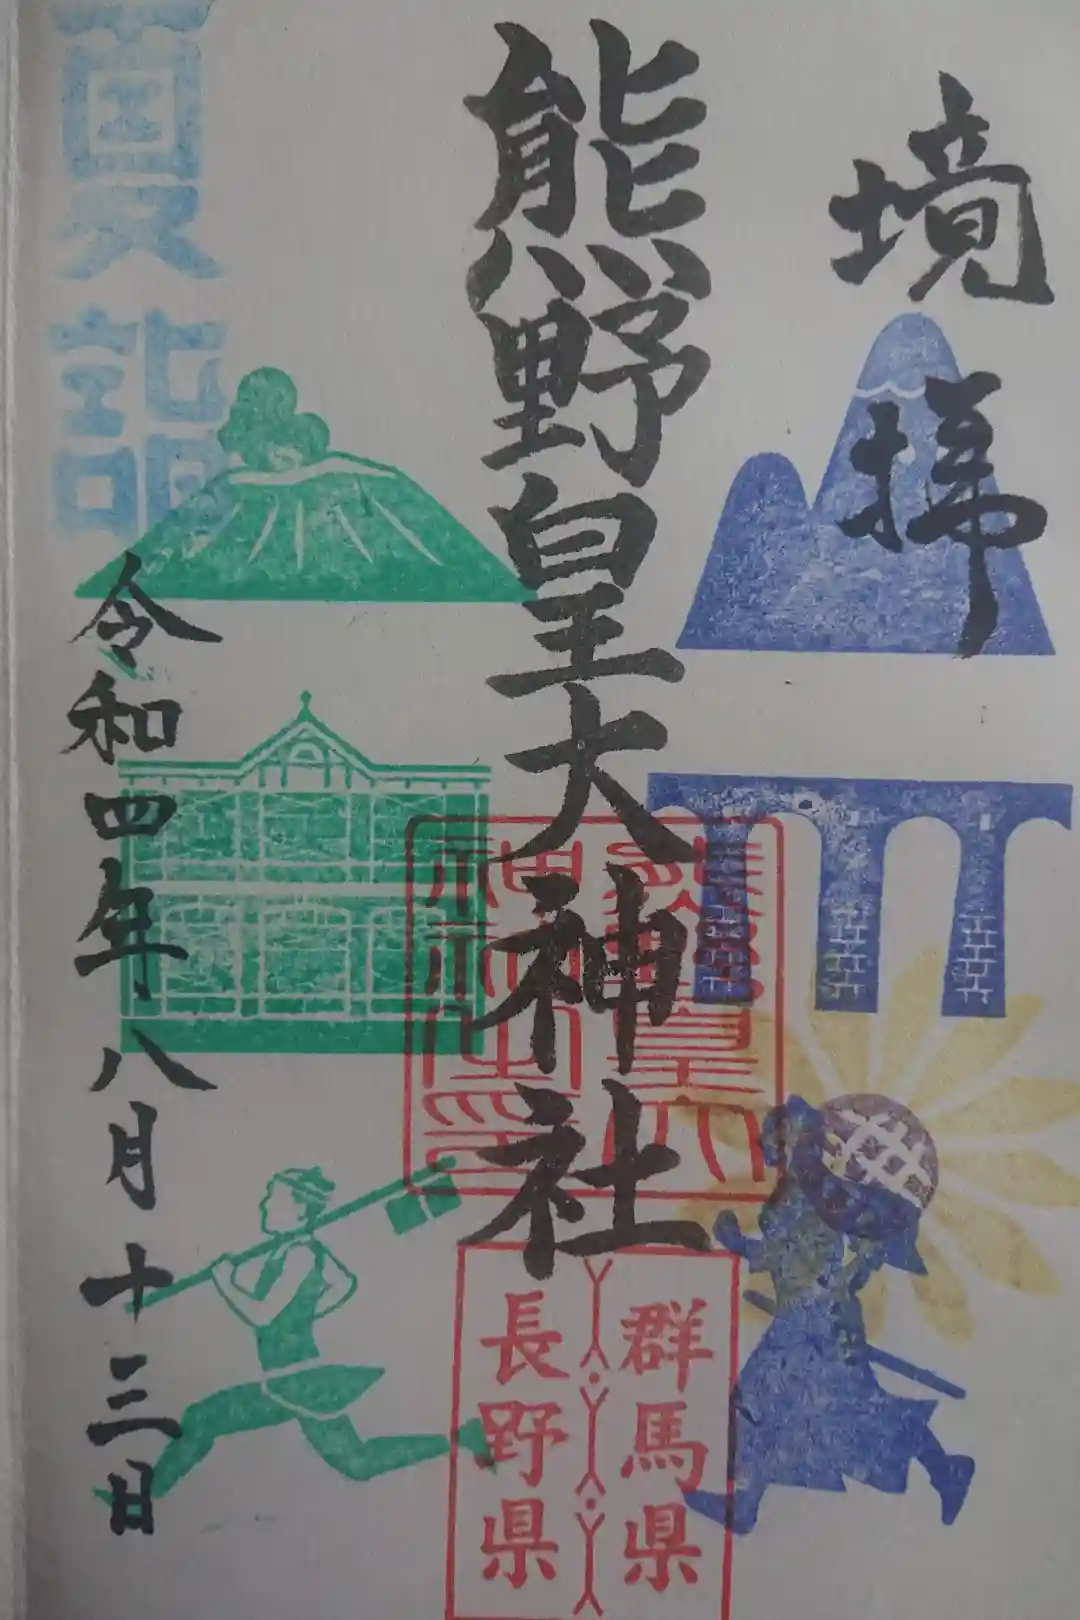 境拝
熊野皇大神社
群馬県
長野県
夏詣
令和四年八月十三日